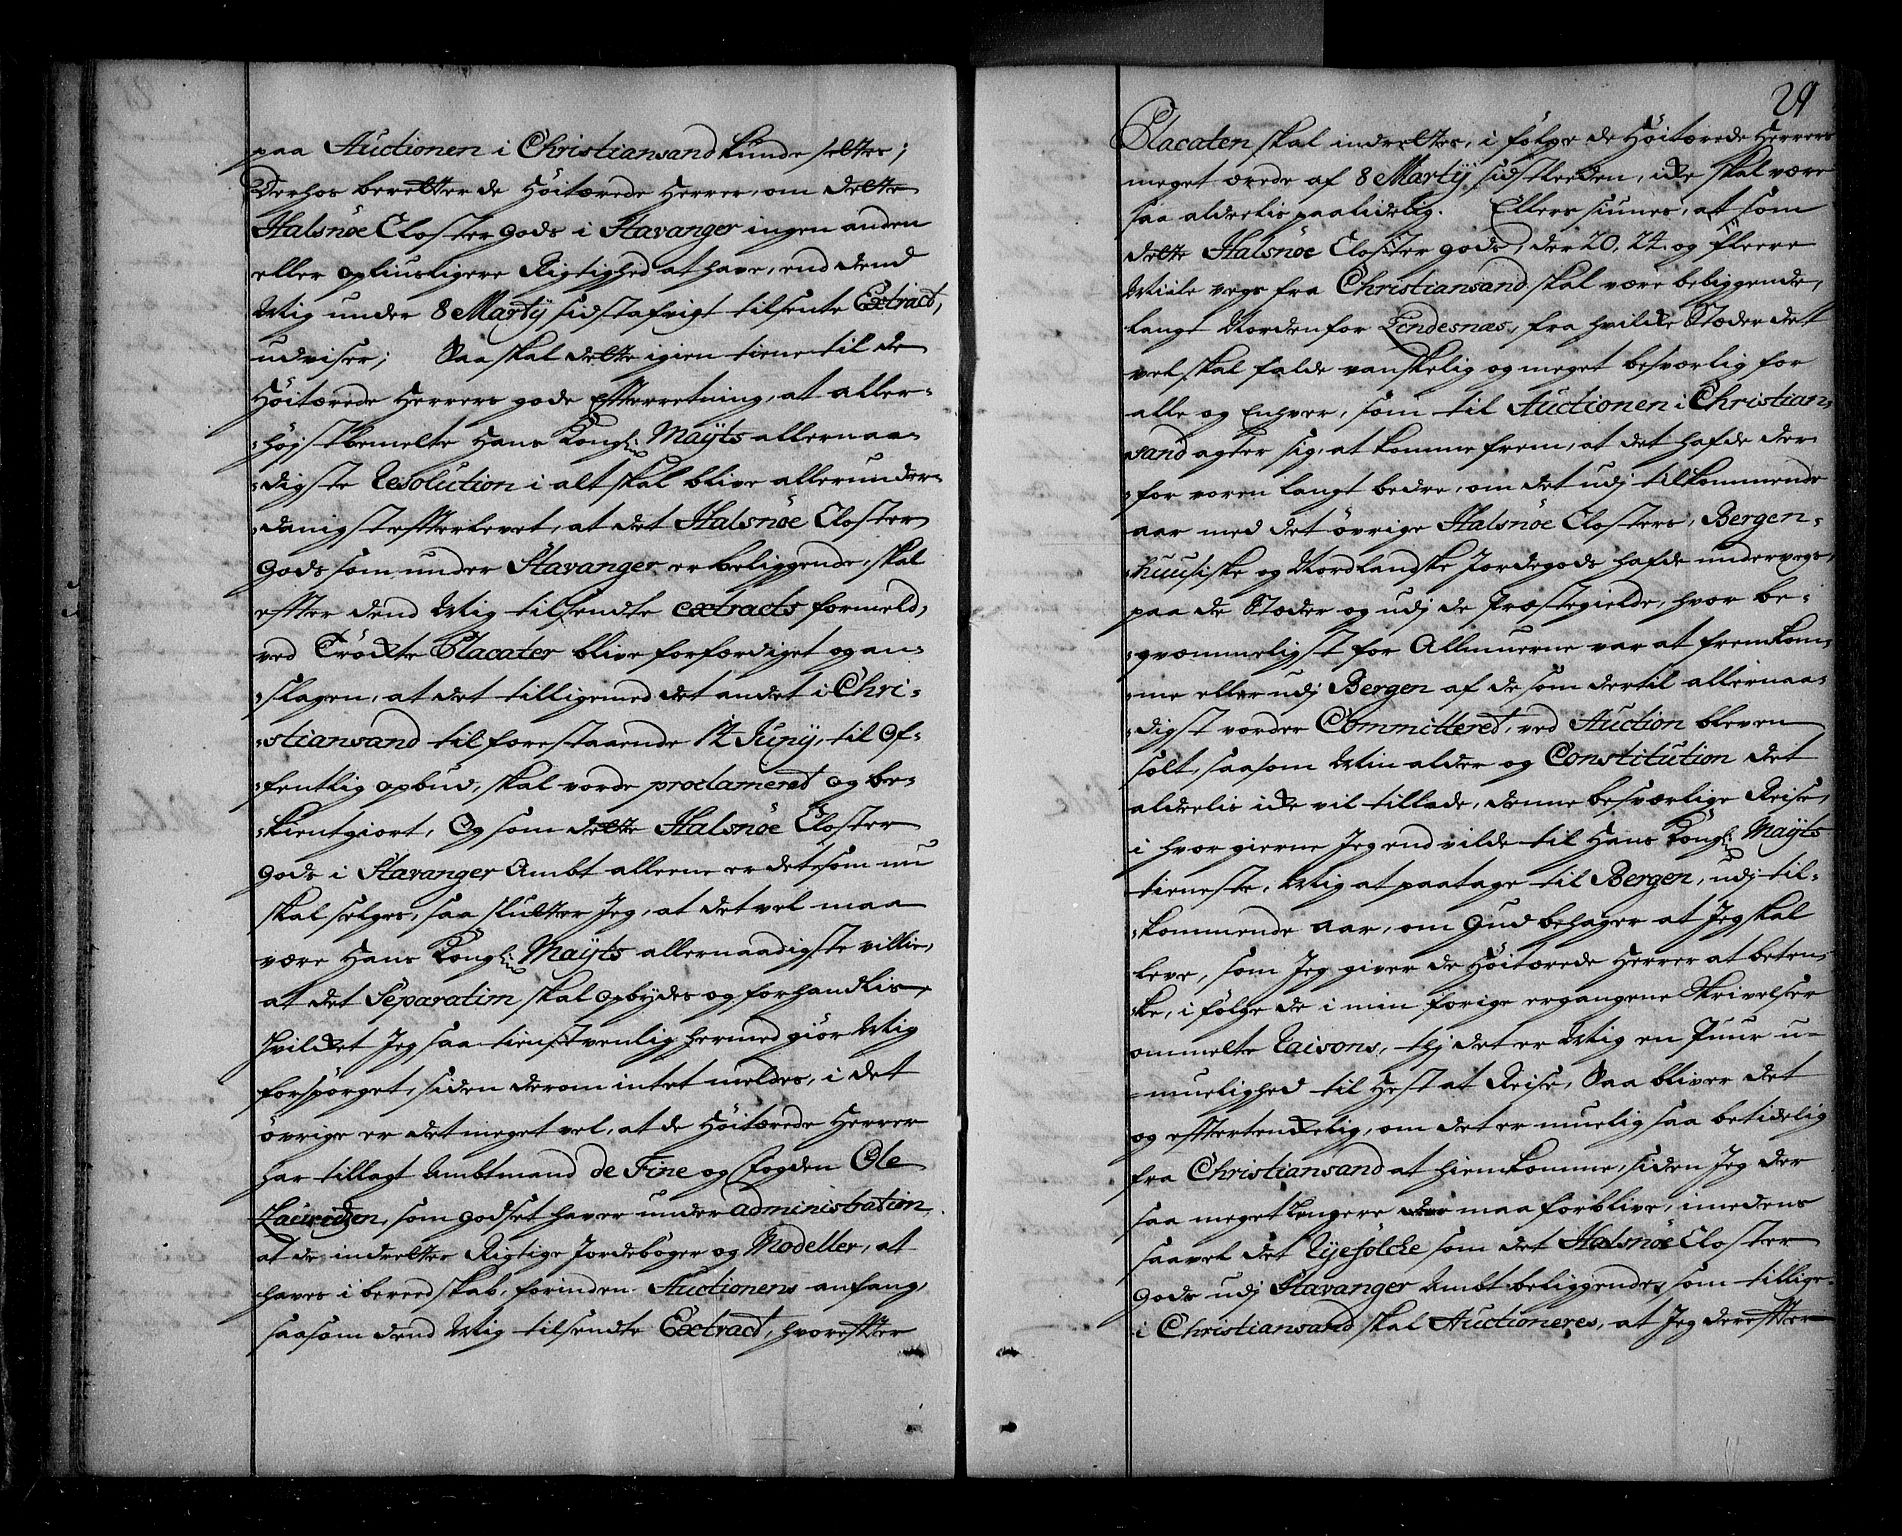 paa Auctionen i Christiansand kunde settes;
Derhos beretter de Höitærede Herrer, om dette
Halsnöe Closter gods i Stavanger ingen anden
eller opliusligere Rigtighed at have, end dend
Mig under 8 Martÿ sidst afvigt tilsente Extract,
udviser; Saa skal dette igien tiene til de
Höitærede Herrers gode Efterretning, at aller-
-höjstbemelte Hans Kongl: Maÿts allernaa-
-digste Resolution i alt skal blive allerunder-
-danigst efterlevet, at det Halsnöe Closter
Gods som under Stavanger er beliggende, skal
efter dend Mig tilsendte extracts formeld,
ved Tröckte Placater blive forfærdiget og an-
-slagen, at det tilligemed det andet i Chri-
-stiansand til forestaaende 14 Junÿ, til of-
-fentlig opbud, skal vorde proclameret og be-
-kientgiort, Og som dette Halsnöe Closter
Gods i Stavanger Ambt alleene er det som nu
skal selges, saa slutter Jeg, at det vel maa
være Hans Kongl: Maÿts allernaadigste villie,
at det Separatim skal opbydes og forhandlis,
Hvilket Jeg saa tienstvenlig hermed giör Mig
forspörget, siden derom intet meldes, i det
övrige er det meget vel, at de Höitærede Herrer
har tillagt Ambtmand de Fine og Fogden Ole
Lauridsen, som godset haver under administration
at de indretter Rigtige Jordebøger og Modeller, at
haves i bereedskab, forinden Auctionens anfang,
saasom dend Mig tilsendte Extract, hvorefter
29
Placaten skal indrettes, i fölge de Höitærede Herrers
meget ærede af 8 Martÿ sidstleeden, icke skal være
saa alderlis paalidelig. Ellers siunes, at som
dette Halsnöe Closter gods, der 20, 24, og fleere
Miile vegs fra Christiansand skal være beliggende,
langt Norden for Lindesnæs, fra hvilcke Stæder det
vel skal falde vanskelig og meget besværlig for
alle og Enhver, som til Auctionen i Christian-
sand agter sig, at komme frem, at det hafde der-
-for voren langt bedre, om det udj tilkommende
aar med det övrige Halsnöe Closters, Bergen-
-huusiske og Nordlandske Jordegods hafde undervegs,
paa de Stæder og udj de Præstegielde, hvor be-
-qvemmeligst for Allmuerne var at fremkom-
-me eller udj Bergen af de som dertil allernaa-
-digst vorder Committeret, ved Auction bleven
solt, saasom Min alder og Constitution det
alderlis icke vil tillade, denne besværlige Reise,
i hvor gierne Jeg end vilde til Hans Kongl: Maÿts
tieneste, Mig at paatage til Bergen, udj til-
-kommende aar, om Gud behager at Jeg skal
leve, som Jeg giver de Höitærede Herrer at beten-
ke, i fölge de i min forige ergangene Skrivelser
ommelte Raisons, thj det er Mig en Puur u-
-muelighed til Hest at Reise, Saa bliver det
og eftertenckelig, om det er muelig saa betidelig
fra Christiansand at hiemkomme, siden Jeg der
saa meget lengere maa forblive, imedens
saavel det Ryefölcke som det Halsnöe Closter
Gods udj Stavanger Ambt beliggende, som tillige
i Christiansand skal Auctioneres, at Jeg derefter